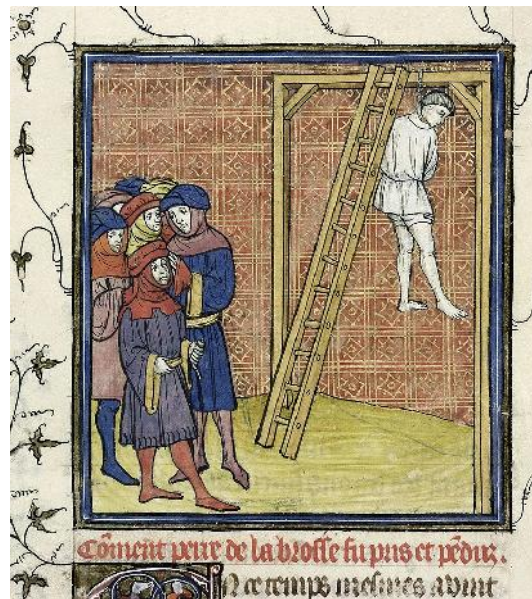 Cõment pierre de la brosse fu pris et pẽduz.
En ce temps mesmes auint